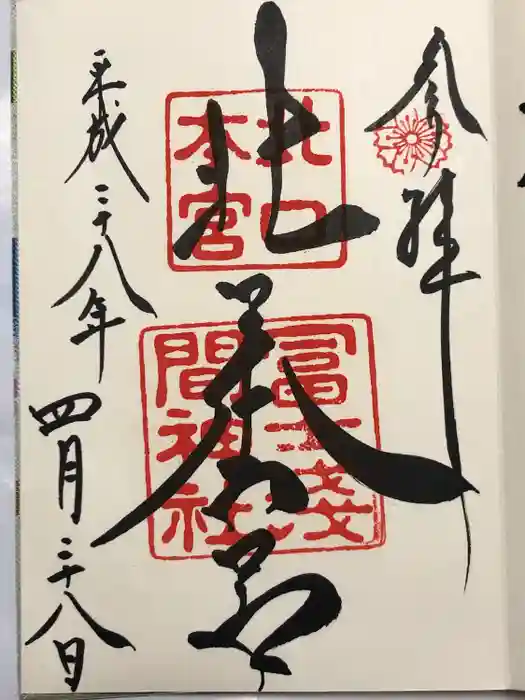 参拝
北口本宮
北口
本宮
冨士淺
間神社
平成二十八年四月二十八日